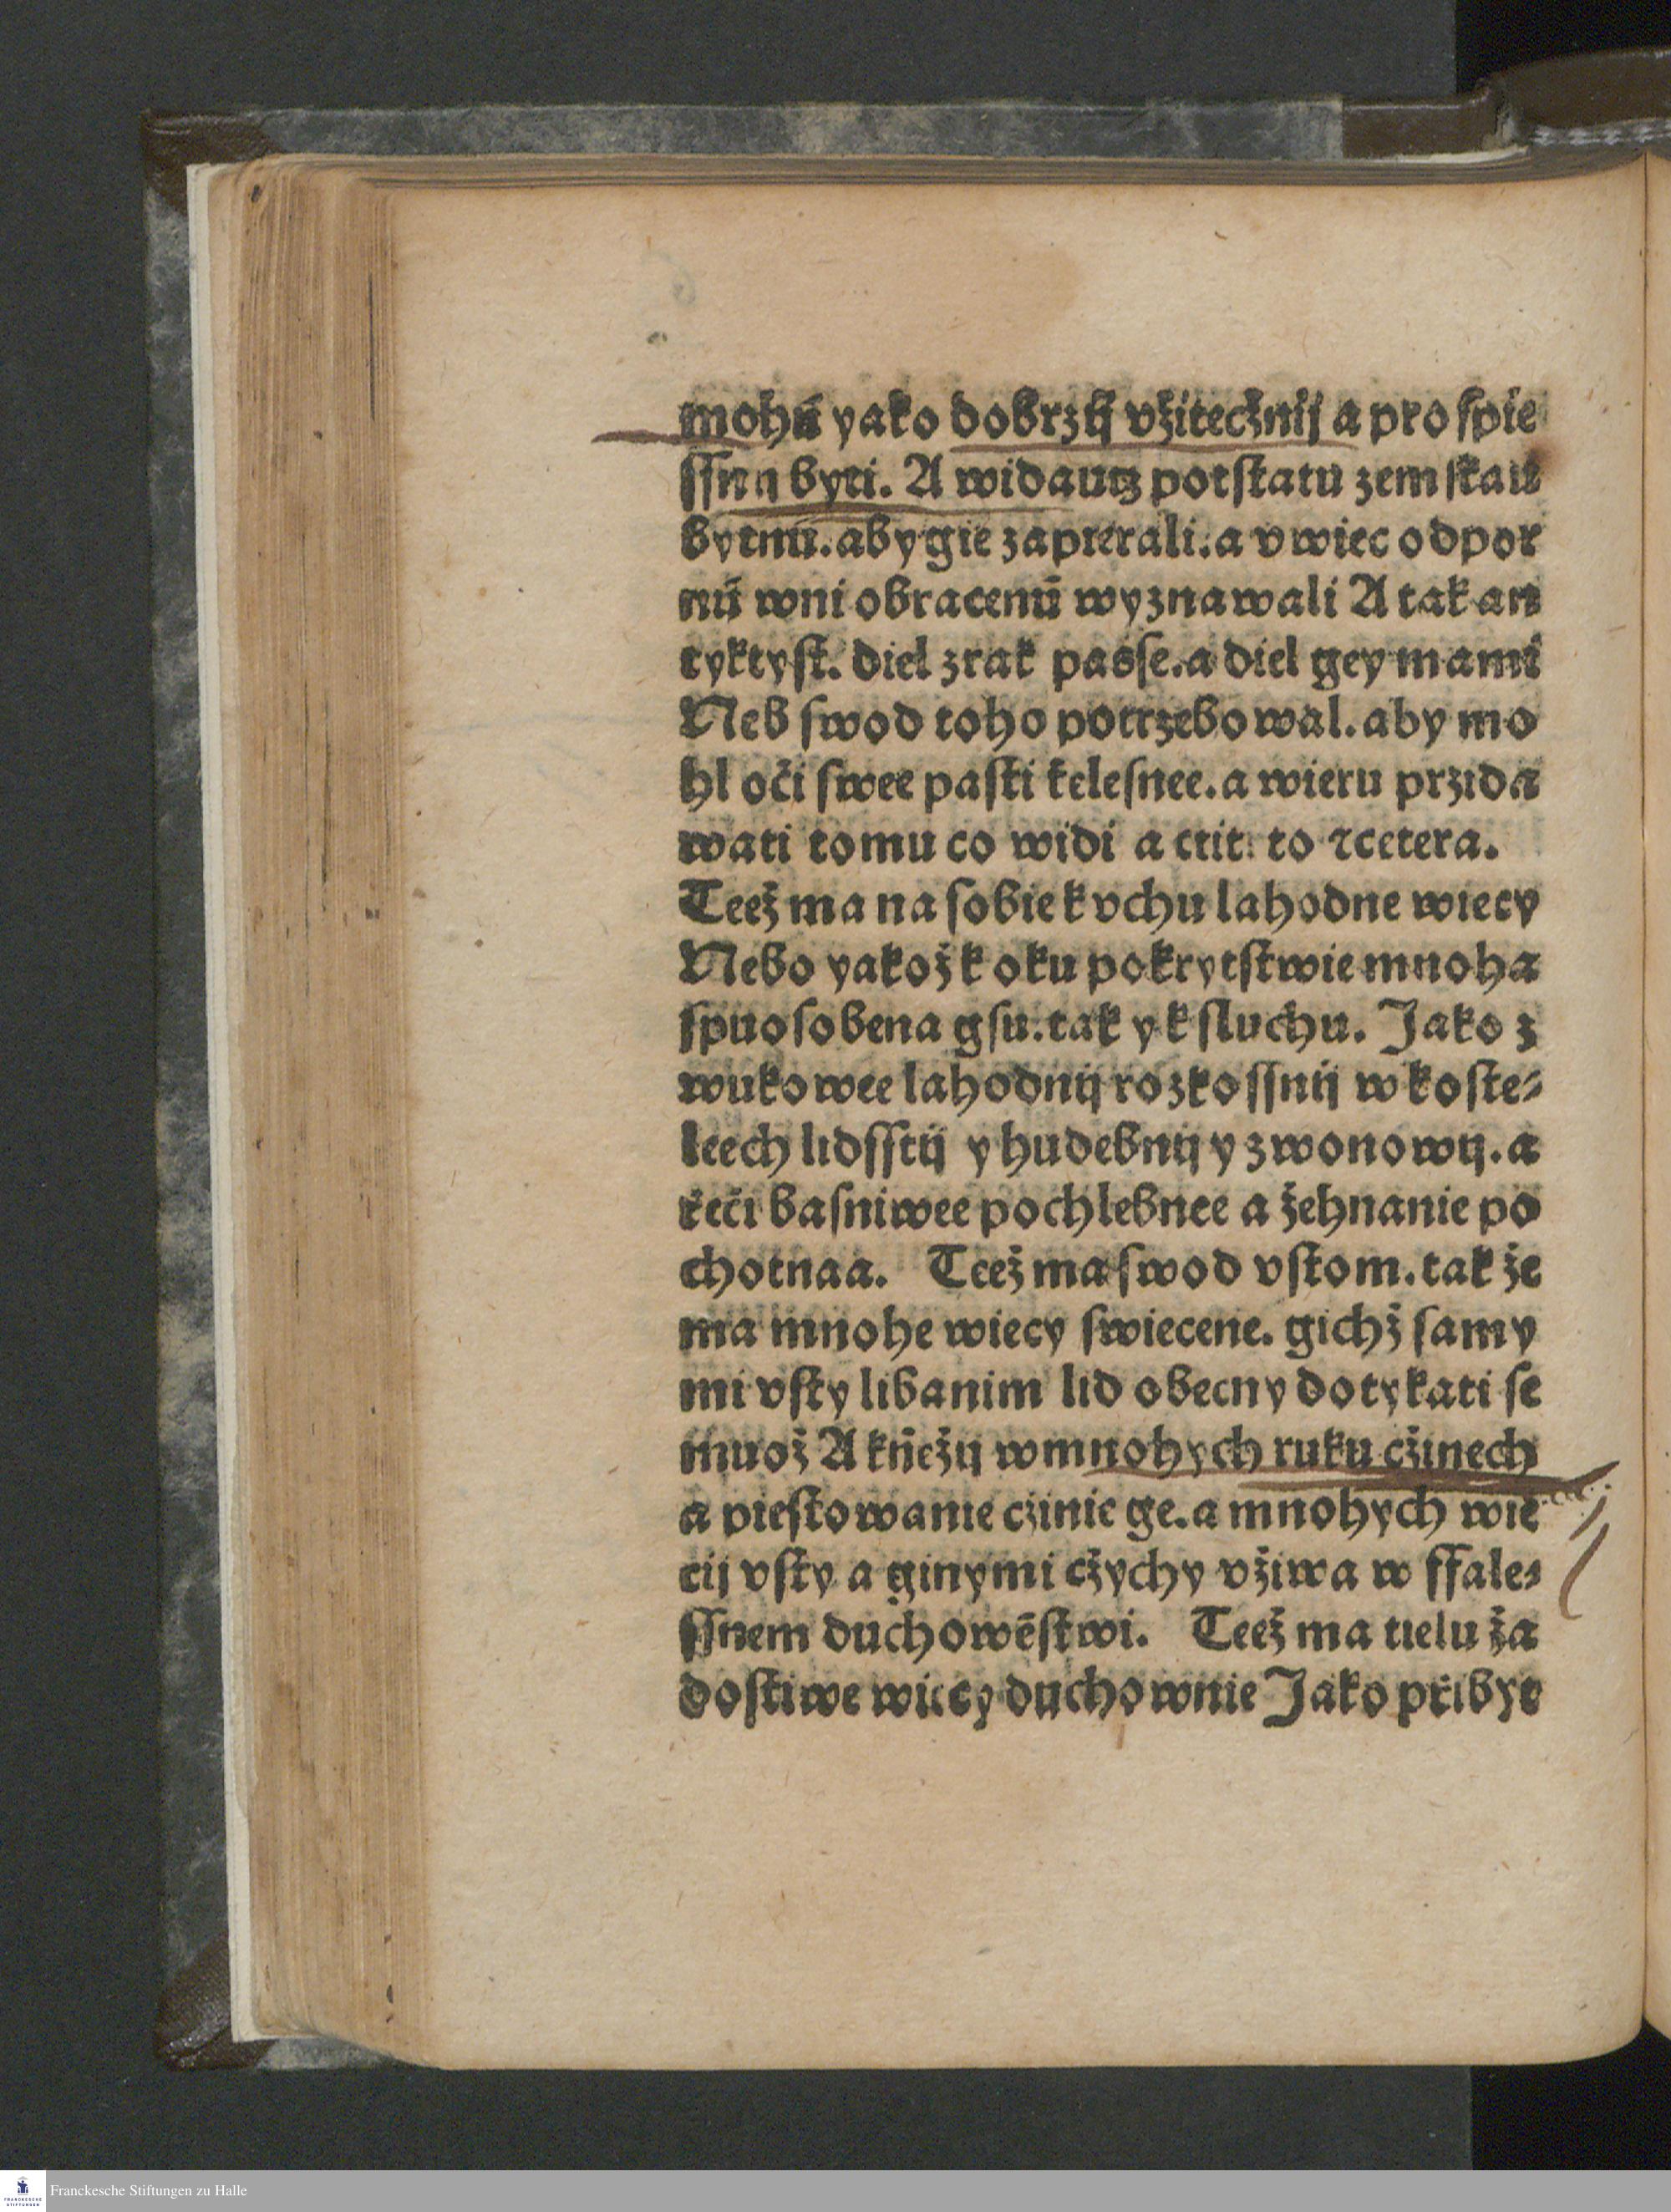 mohú yako dobrzij vžitecžnij a pro ſpie
ſſnij byti. A widautz potſtatu zemſkau
bytnú. aby gie zaprerali. a v wiec odpor
nú wni obracenú wyznawali A tak an
tykryſt. diel zrak pasſe. a diel gey mami
Neb ſwod toho potrzebowal. aby mo
hl oči ſwee paſti teleſnee. a wieru przida
wati tomu co widi a ctiti to ⁊cetera.
Teež ma na ſobie k vchu lahodne wiecy
Nebo yakož k oku pokrytſtwie mnoha
ſpuoſobena gſu. tak y k ſluchu. Jako z
wukowee lahodnij rozkoſſnij w koſte⸗
leech lidſſtij y hudebnij y zwonowij. a
řeči baſniwee pochlebnee a žehnanie po
chotnaa. Teež ma ſwod vſtom. tak že
ma mnohe wiecy ſwiecene. gichž ſamy
mi vſty libanim lid obecny dotykati ſe
muož A kňežij w mnohych ruku cžinech
a pieſtowanie czinie ge. a mnohych wie
cij vſty a ginymi cžychy vžiwa w ffale⸗
ſſnem duchowēſtwi. Teež ma tielu ža
doſtiwe wiecy duchownie Jako přibyt
Franckesche Stiftungen zu Halle